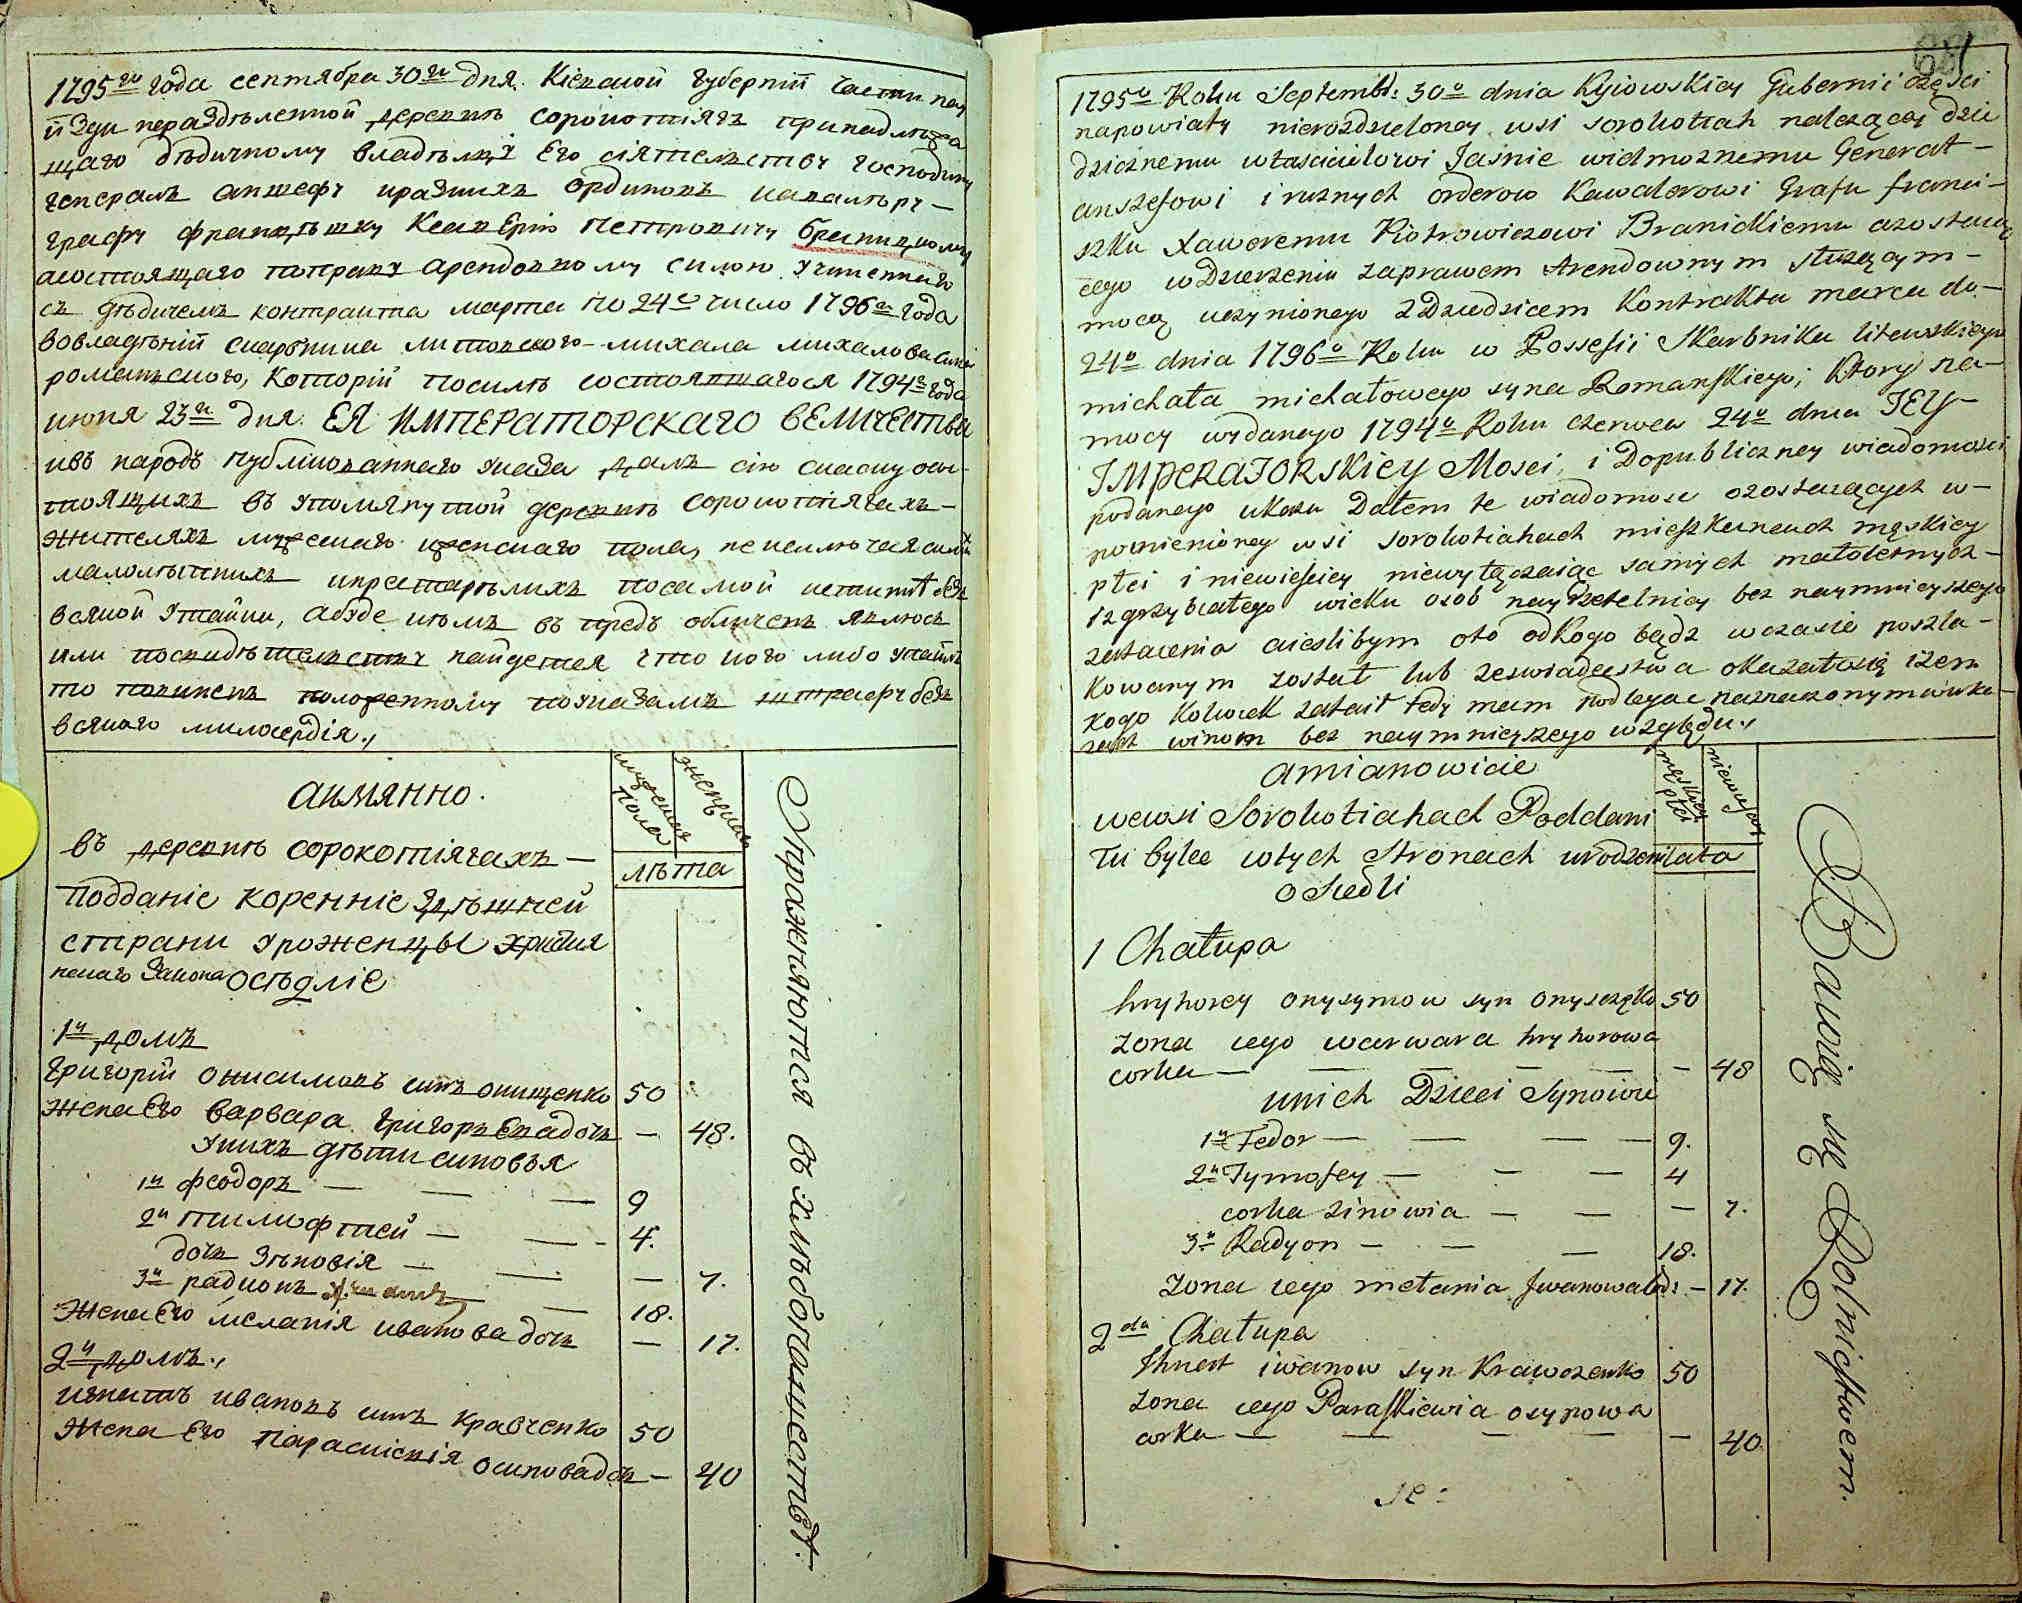 1795го года сентября 30го дня. Кіевской губерніи части на у
ѣзди нераздѣленной деревнѣ сорокотягѣ принадлежа
щаго дѣдичному владѣлцу Его сіятелству господину
генералъ аншефу иразнихъ ординовъ кавалѣру —
графу францѣшку Ксавѣрію Петровичу браницкому
асостоящаго поправу арендовному силою учиненнаго
съ дѣдичемъ контракта марта по 24е число 1796го года
вовладѣній скарбника литовского – михала михалова сина
романского, которій посилѣ состоявшагося 1794го года
июня 23го дня. ЕЯ ИМПЕРАТОРСКАГО ВЕЛИЧЕСТВА
ивъ народъ публикованнаго указа далъ сію сказку осо-
тоящихъ въ упомянутой деревнѣ сорокотягахъ —
жителяхъ мужескаго иженскаго пола, неисключая самих
малолѣтнихъ ипрестарѣлихъ посамой истиннѣ безъ
всякой утайки, абуде кѣмъ въ предъ обличенъ явлюсь
или посвидѣтелству найдется что кого либо утаилъ
то повиненъ положенному поуказамъ штрафу безъ
всякаго милосердія.,
аимянно.
мужеска пола
женска
лѣта
въ деревнѣ сорокотягахъ —
подданіе коренніе здѣшней
страни уроженцы христія
нскаго закона осѣдліе
1й домъ
Григорій онисимовъ синъ онищенко 50
жена Его варвара григорьева дочь — 48.
у нихъ дѣти синовья
1й феодоръ — — — 9
2й тимофтей — — - 4.
дочь зѣновія — — — 7.
3й радионъ — 18.
жена Его меланія иванова дочь — 17.
2й домъ.,
игнатъ ивановъ синъ кравченко 50
жена Его параскіевія осипова дочь — 40
Упражняются въ хлѣбопашествѣ.
1795o Roku Septembr: 30o dnia Kyiowskiey Gubernii części
napowiaty nierozdzieloney wsi sorokotiah należącey dzie
dzicznemu właścicielowi Jaśnie wielmożnemu Generał –
anszefowi i rożnych orderow Kawalerowi Grafu franci-
szku Xaweremu Piotrowiczowi Branickiemu a zostaią
cego w Dzierżeniu zaprawem Arendownym służącym –
mocą uczynionego z Dziedzicem Kontraktu marca do –
24o dnia 1796o Roku w Possessii Skarbnika litewskiego
michała michałowego syna Romanskiego; Ktory na –
mocy wydanego 1794o Roku czerwca 24o dnia JEY –
IMPERATORSKIEY Mosci, i Dopubliczney wiadomosci
podanego ukazu Dałem te wiadomosc ozostaiących w –
pomienioney wsi sorokotiahach mieszkancach męskiey
płci i niewieściey niewyłączaiąc samych małoletnych –
izgrzybiałego wieku osob nayrzetelniey bez naymnieyszego
zataienia aiesłibym oto odkogo bądz wczasie poszla –
kowanym został lub zeswiadectwa okazałosię iżem
kogo Kolwiek zataił tedy mam podlegac naznaczonym wuka –
zach winom bez naymnieyszego względu.,
amianowicie
męskiey płci
niewiesciey
lata
wewsi Sorokotiahach Poddani
Tu bylce wtych Stronach urodzeni
osiedli
1 Chałupa
hryhorey onysymow syn onyszczęko 50
żona iego warwara hryhorowa
corka — — — — — 48
unich Dzieci Synowie
1y Fedor — — — — 9.
2y Tymofey — — — 4
corka zinowia — — — 7.
3y Radyon — — — 18.
żona iego mełania Jwanowa cor: — 17.
2da Chałupa
Jhnat iwanow syn Krawczenko 50
żona iego Paraskiewia osypowa
corka — — — — — 40
Bawią się Rolnictwem.